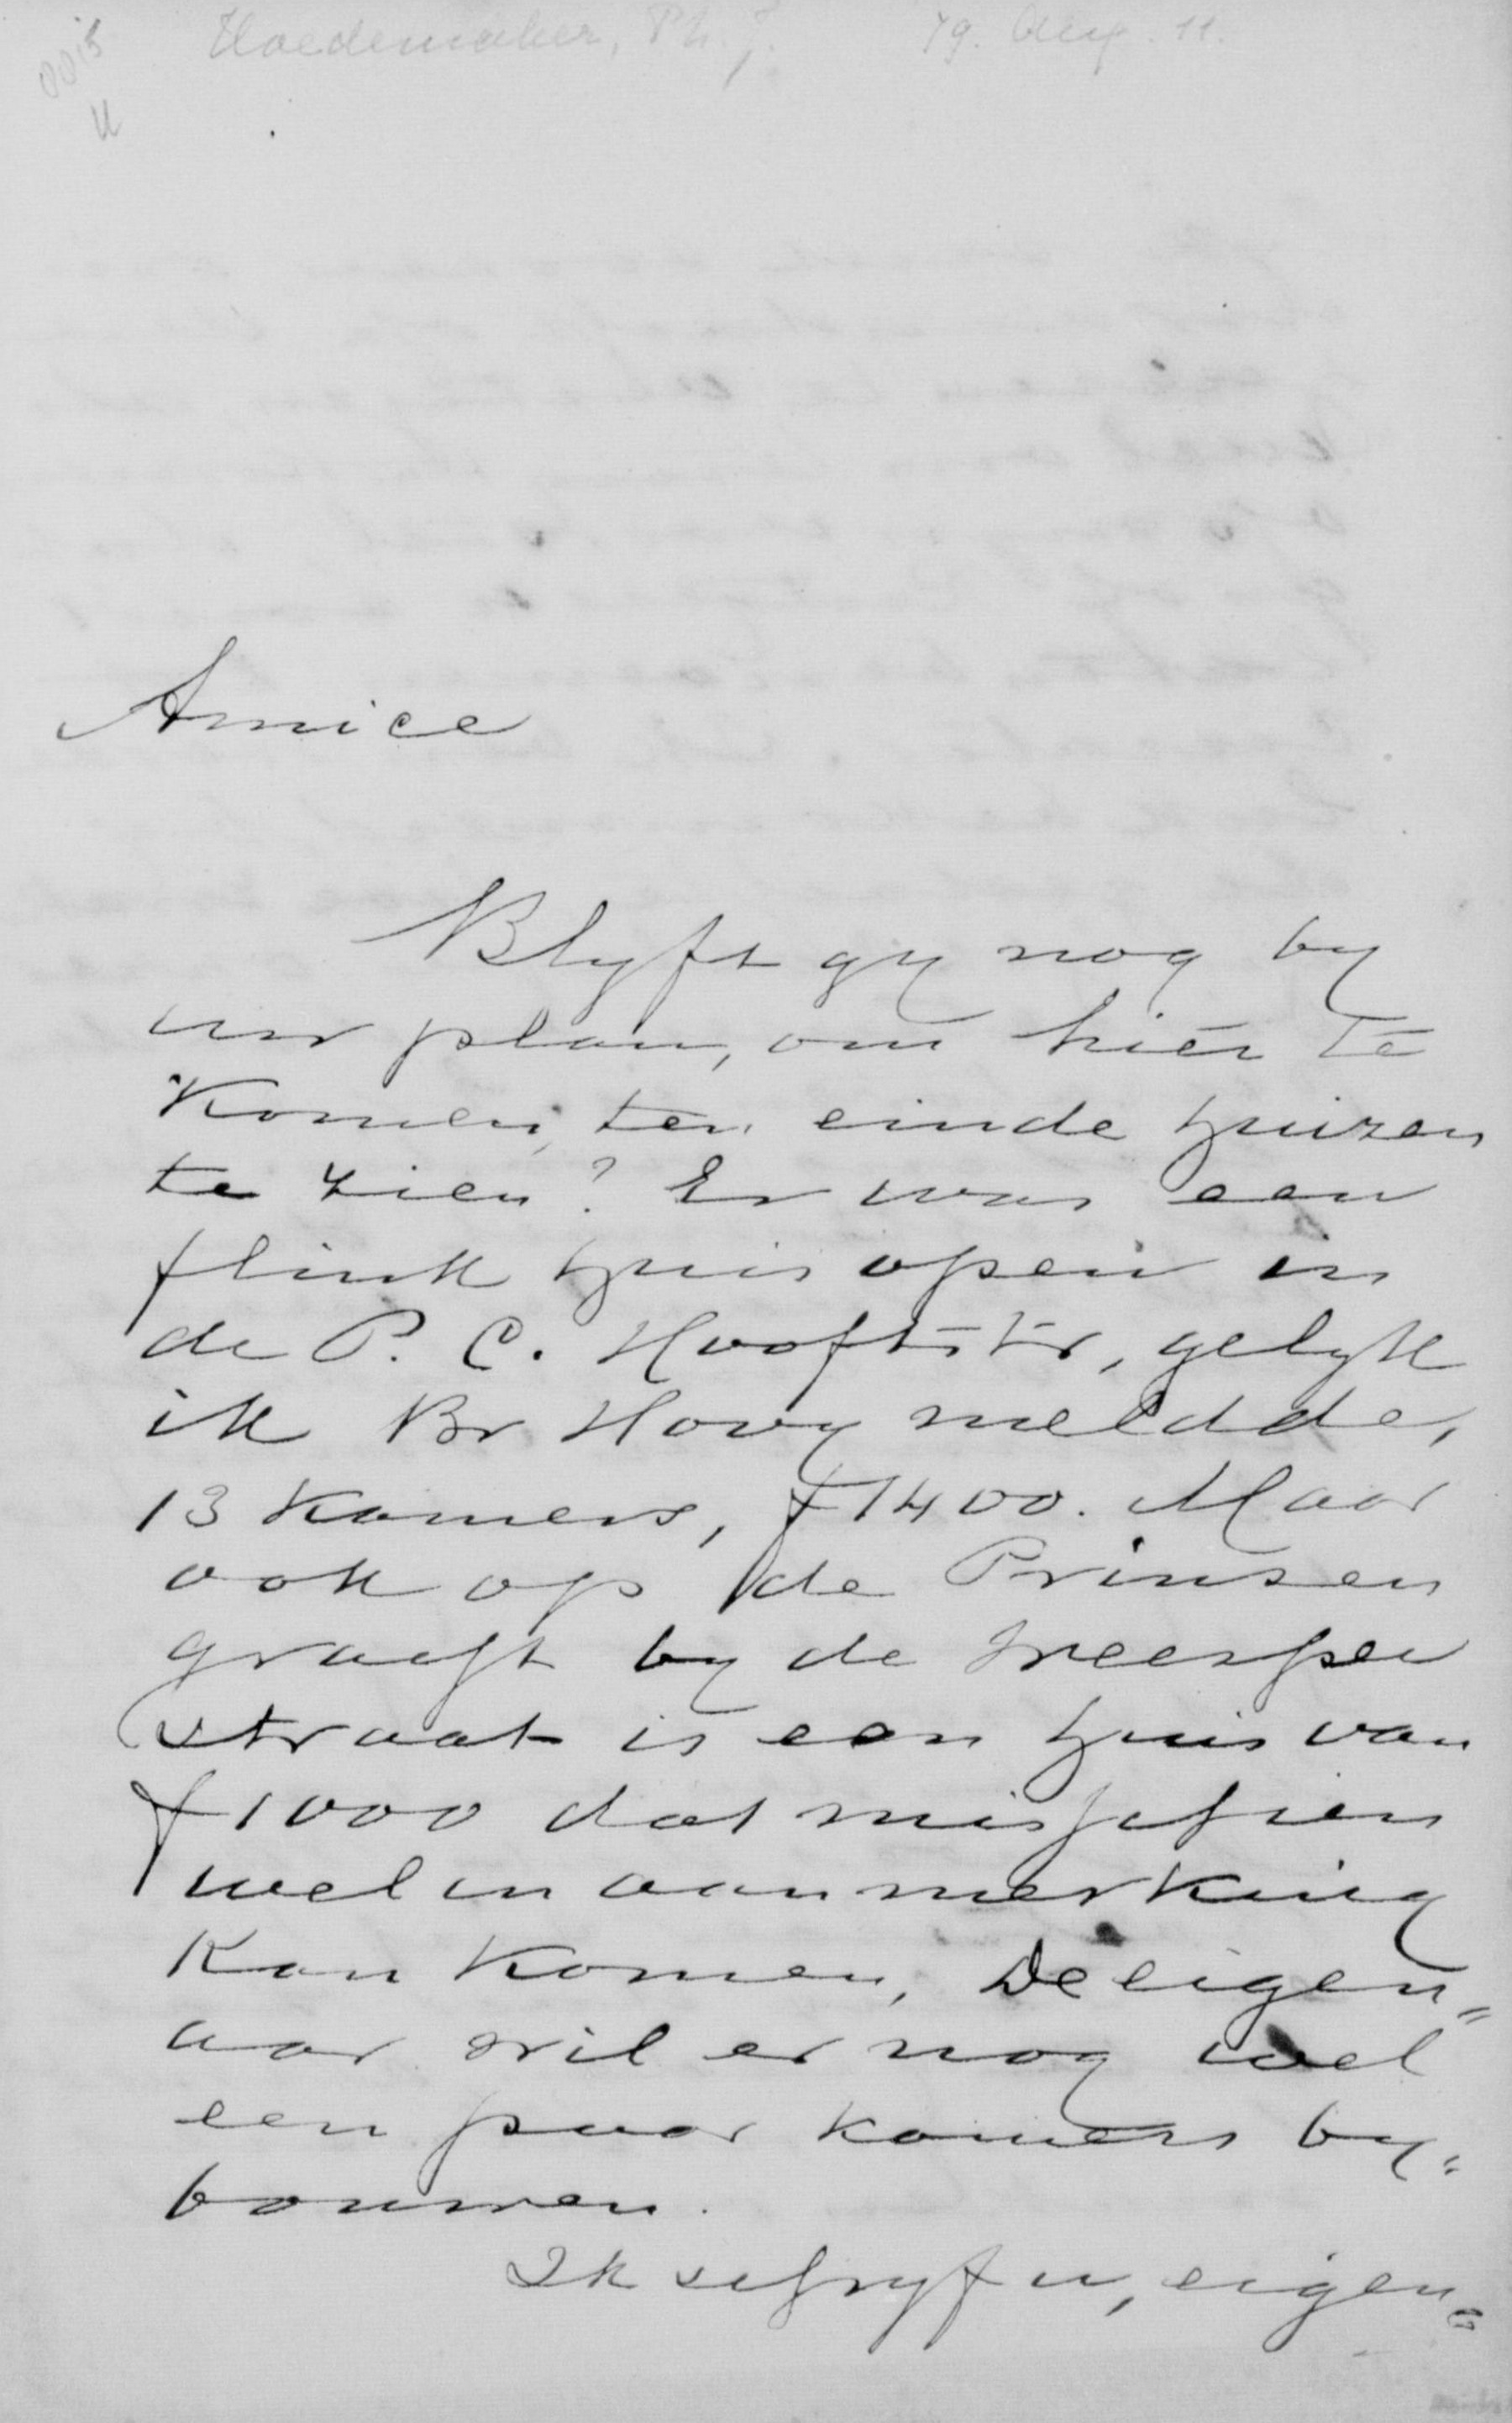 0015 Hoedemaker, Ph. J. 79. Aug. 11.
Amice
Blyft gy nog by
uw plan, om hier te
komen, ten einde huizen
te zien? Er was een
flink huis open in
de P. C. Hooftstr, gelyk
ik Br Hovy meldde,
13 kamers, f 1400. Maar
ook op de Prinsen
gracht by de Weesper
straat is een huis van
f 1000 dat misschien
wel in aanmerking
kan komen, De eigen„
aar wil er nog wel
een paar kamers by„
bouwen.
Ik schryf u, eigen„